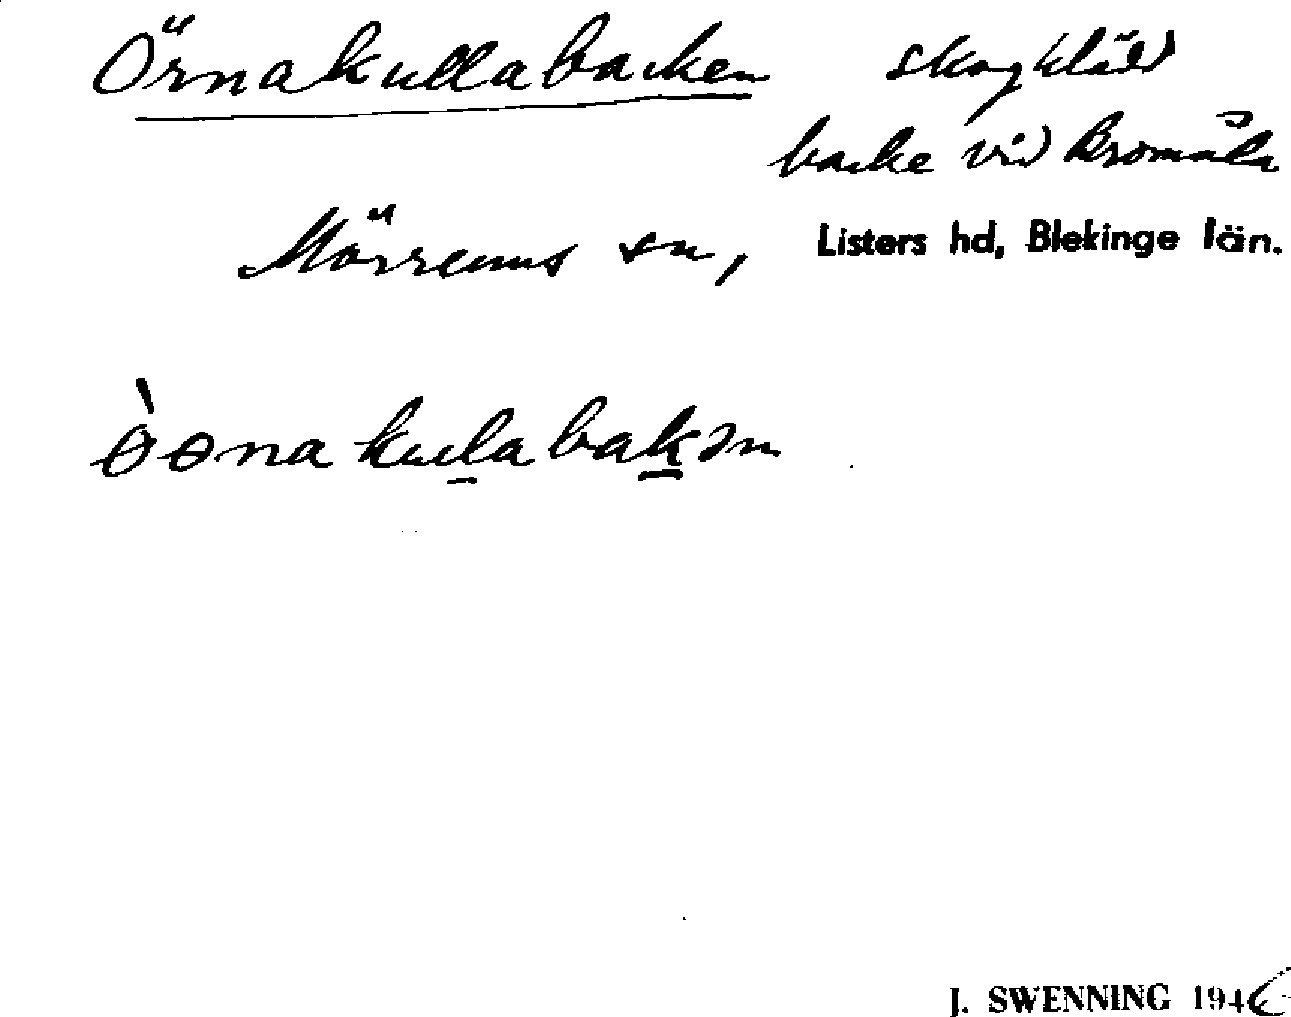 Örnakullabacken skogklädd
backe vid Bromåla
Mörrums sn, Listers hd, Blekinge län.
ò̵ɵna kula bakən
J. SWENNING 1946